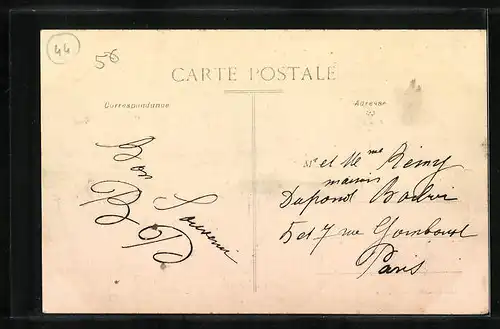 44
56
CARTE POSTALE
Correspondance
Adresse
Bon Souvenir
Mr et Mme Rémy
maison
Dupont
5 et 7 rue Gomboust
Paris